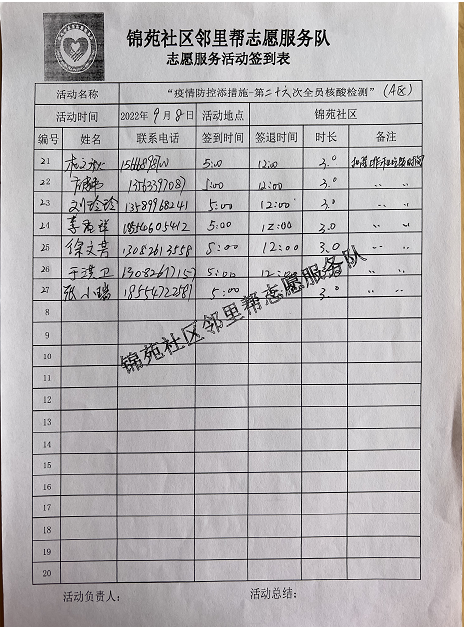 锦苑社区邻里帮志愿服务队
志愿服务活动签到表
活动名称 “疫情防控添措施-第二十六次全员核酸检测” (A区)
活动时间 2022年9月8日 活动地点 锦苑社区
编号 姓名 联系电话 签到时间 签退时间 时长 备注
21 5:00 12:00 3.0
22 13563397087 5:00 12:00 3.0 〃 〃
23 刘玲玲 13589968241 5:00 12:00 3.0 〃 〃
24 18554605412 5:00 12:00 3.0 〃 〃
25 徐文芳 13082613558 5:00 12:00 3.0 〃 〃
26 于洪卫 5:00 12:00 3.0 〃 〃
27 张小瑞 18554722581 5:00 3.0 〃 〃
8
9
10
11
12
13
14
15
16
17
18
19
20
锦苑社区邻里帮志愿服务队
活动负责人: 活动总结: